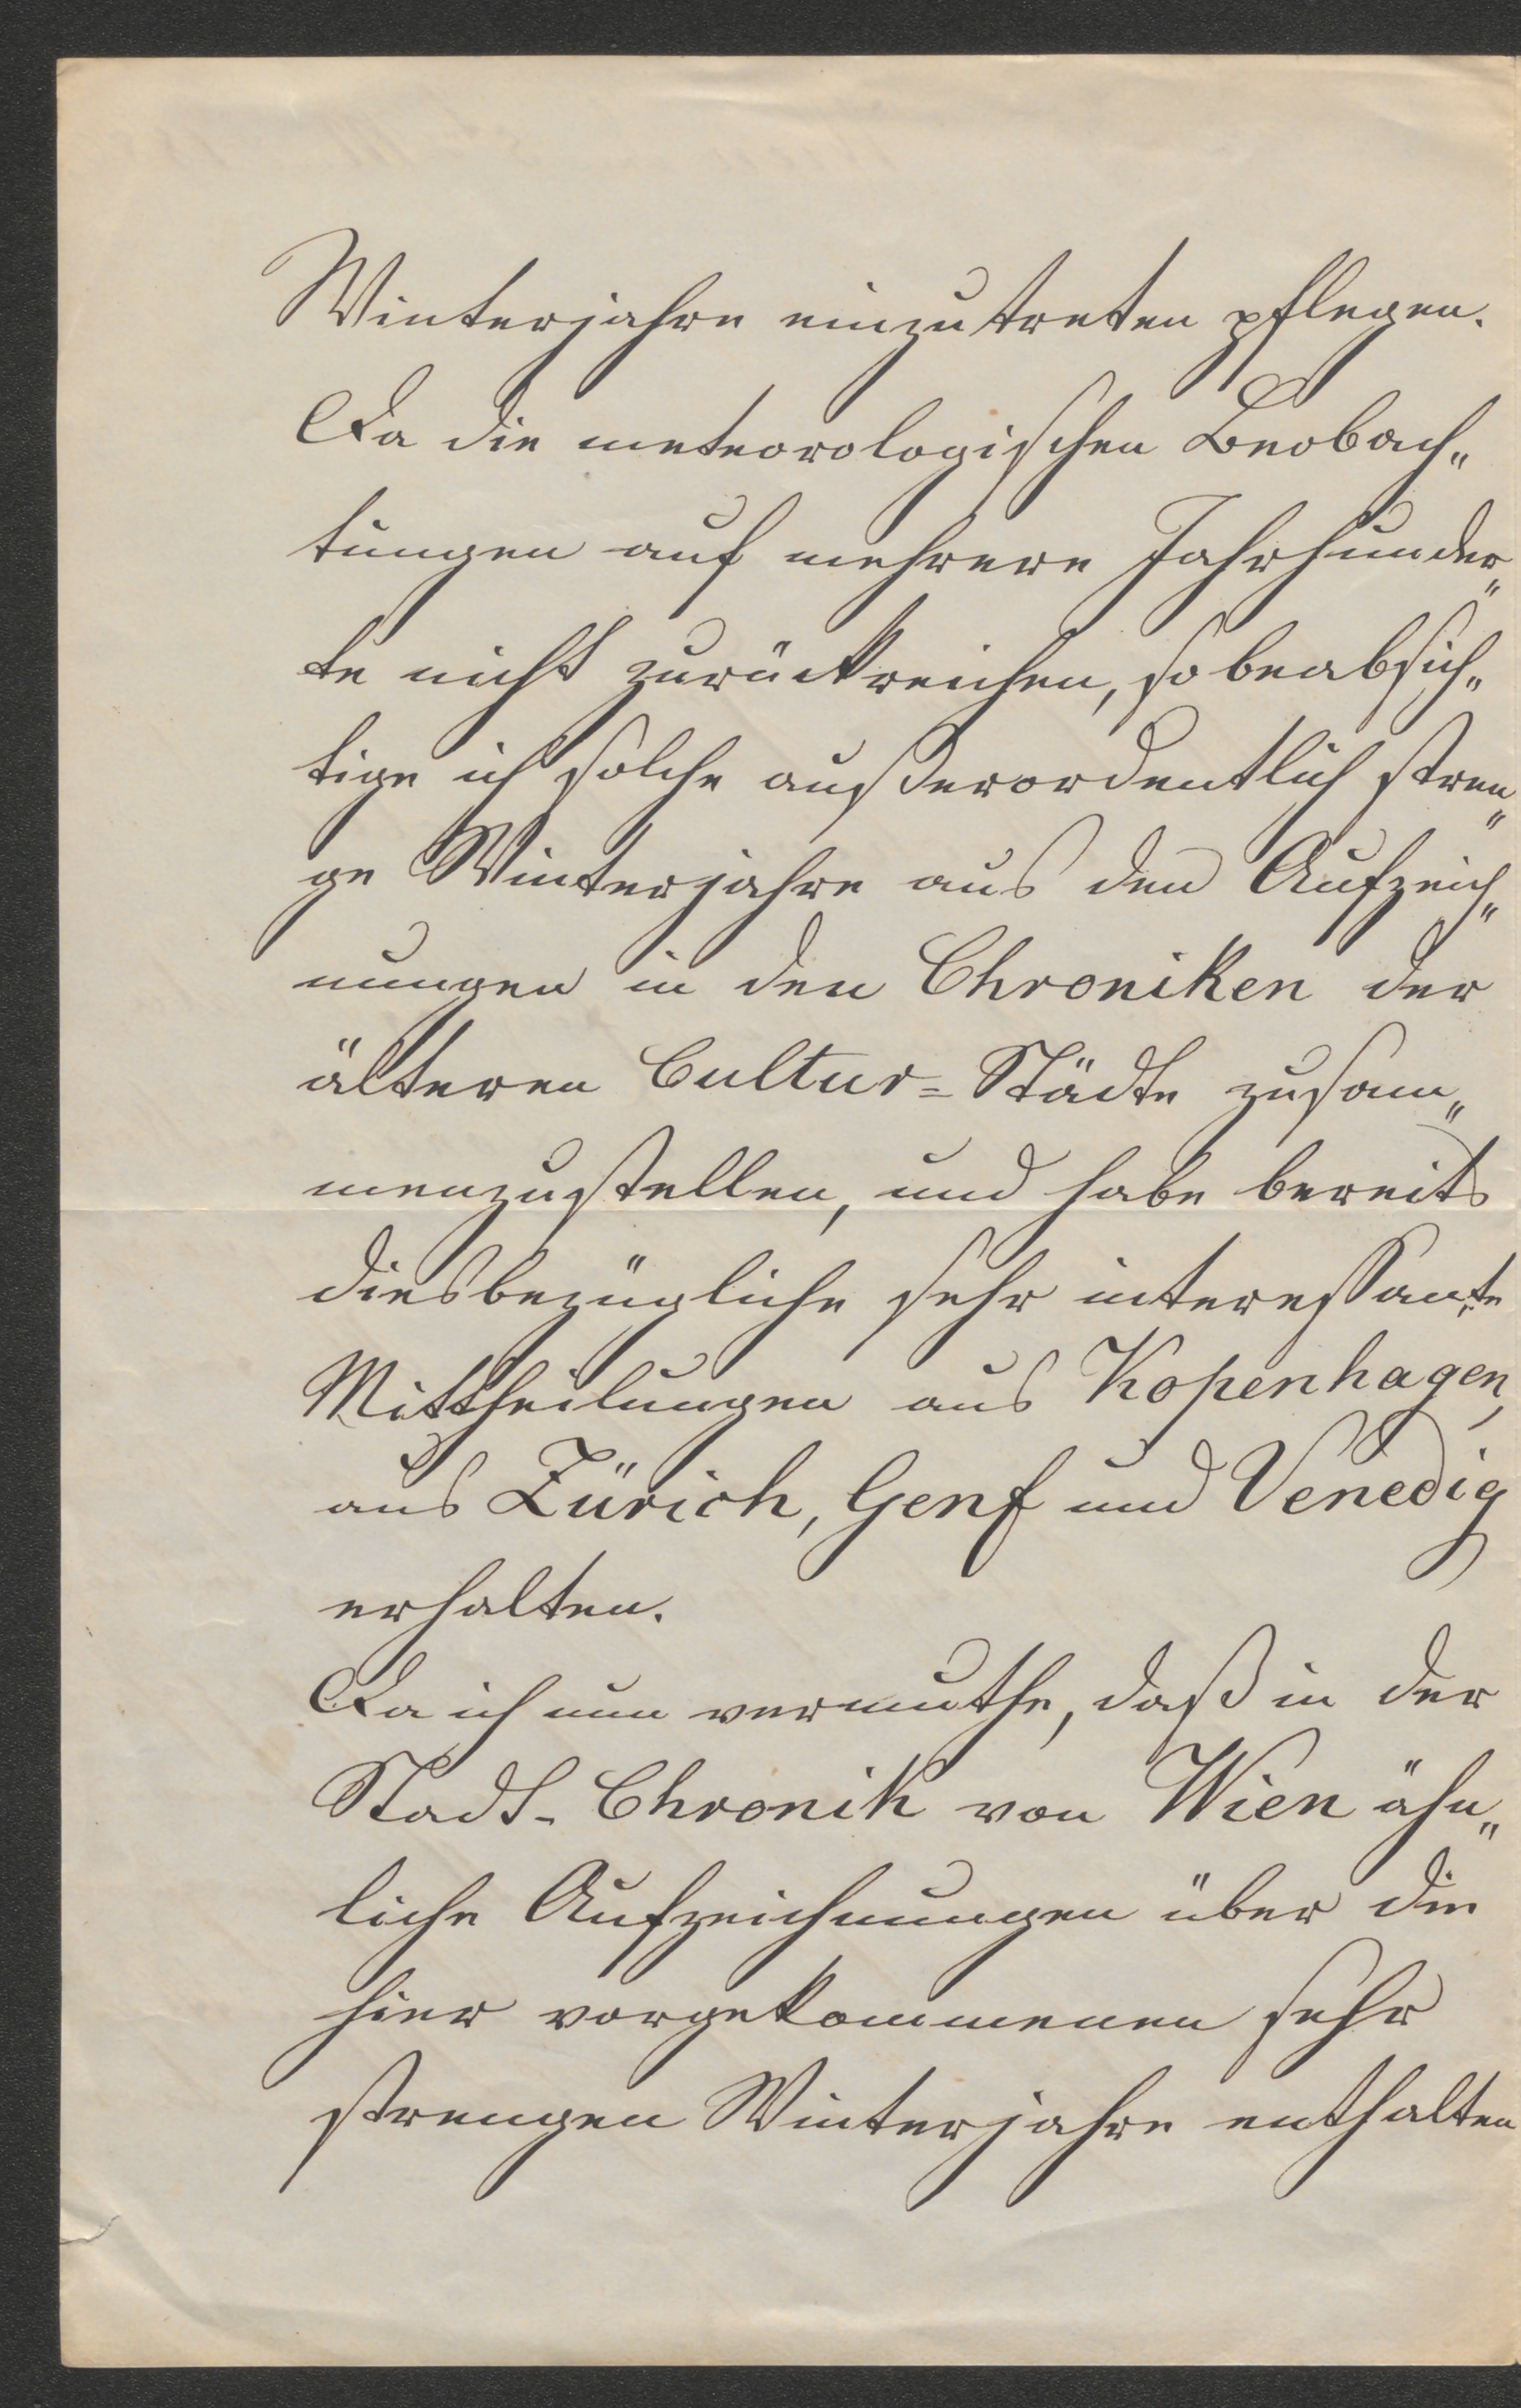 Winterjahre einzutreten pflegen.
Da die meteorologischen Beobach„
tungen auf mehrere Jahrhunder„
te nicht zurückreichen, so beabsich„
tige ich solche außerordentlich stren„
ge Winterjahre aus den Aufzeich„
nungen in den Chroniken der
älteren Cultur=Städte zusam„
menzustellen, und habe bereits
diesbezügliche sehr interessante
Mittheilungen aus Kopenhagen,
aus Zürich, Genf und Venedig
erhalten.
Da ich nun vermuthe, daß in der
Stadt-Chronik von Wien ähn„
liche Aufzeichnungen über die
hier vorgekommenen sehr
strengen Winterjahre enthalten